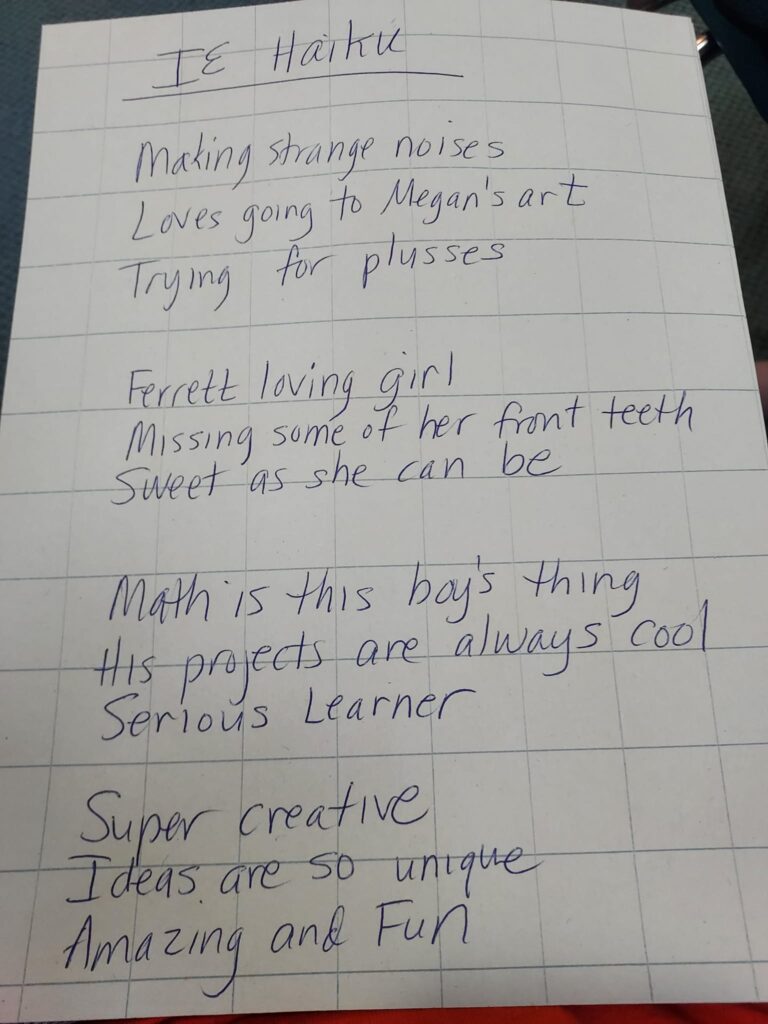 IE Haiku
Making strange noises
Loves going to Megan's art
Trying for plusses
Ferrett loving girl
Missing some of her front teeth
Sweet as she can be
Math is this boy's thing
His projects are always cool
Serious Learner
Super creative
Ideas are so unique
Amazing and Fun